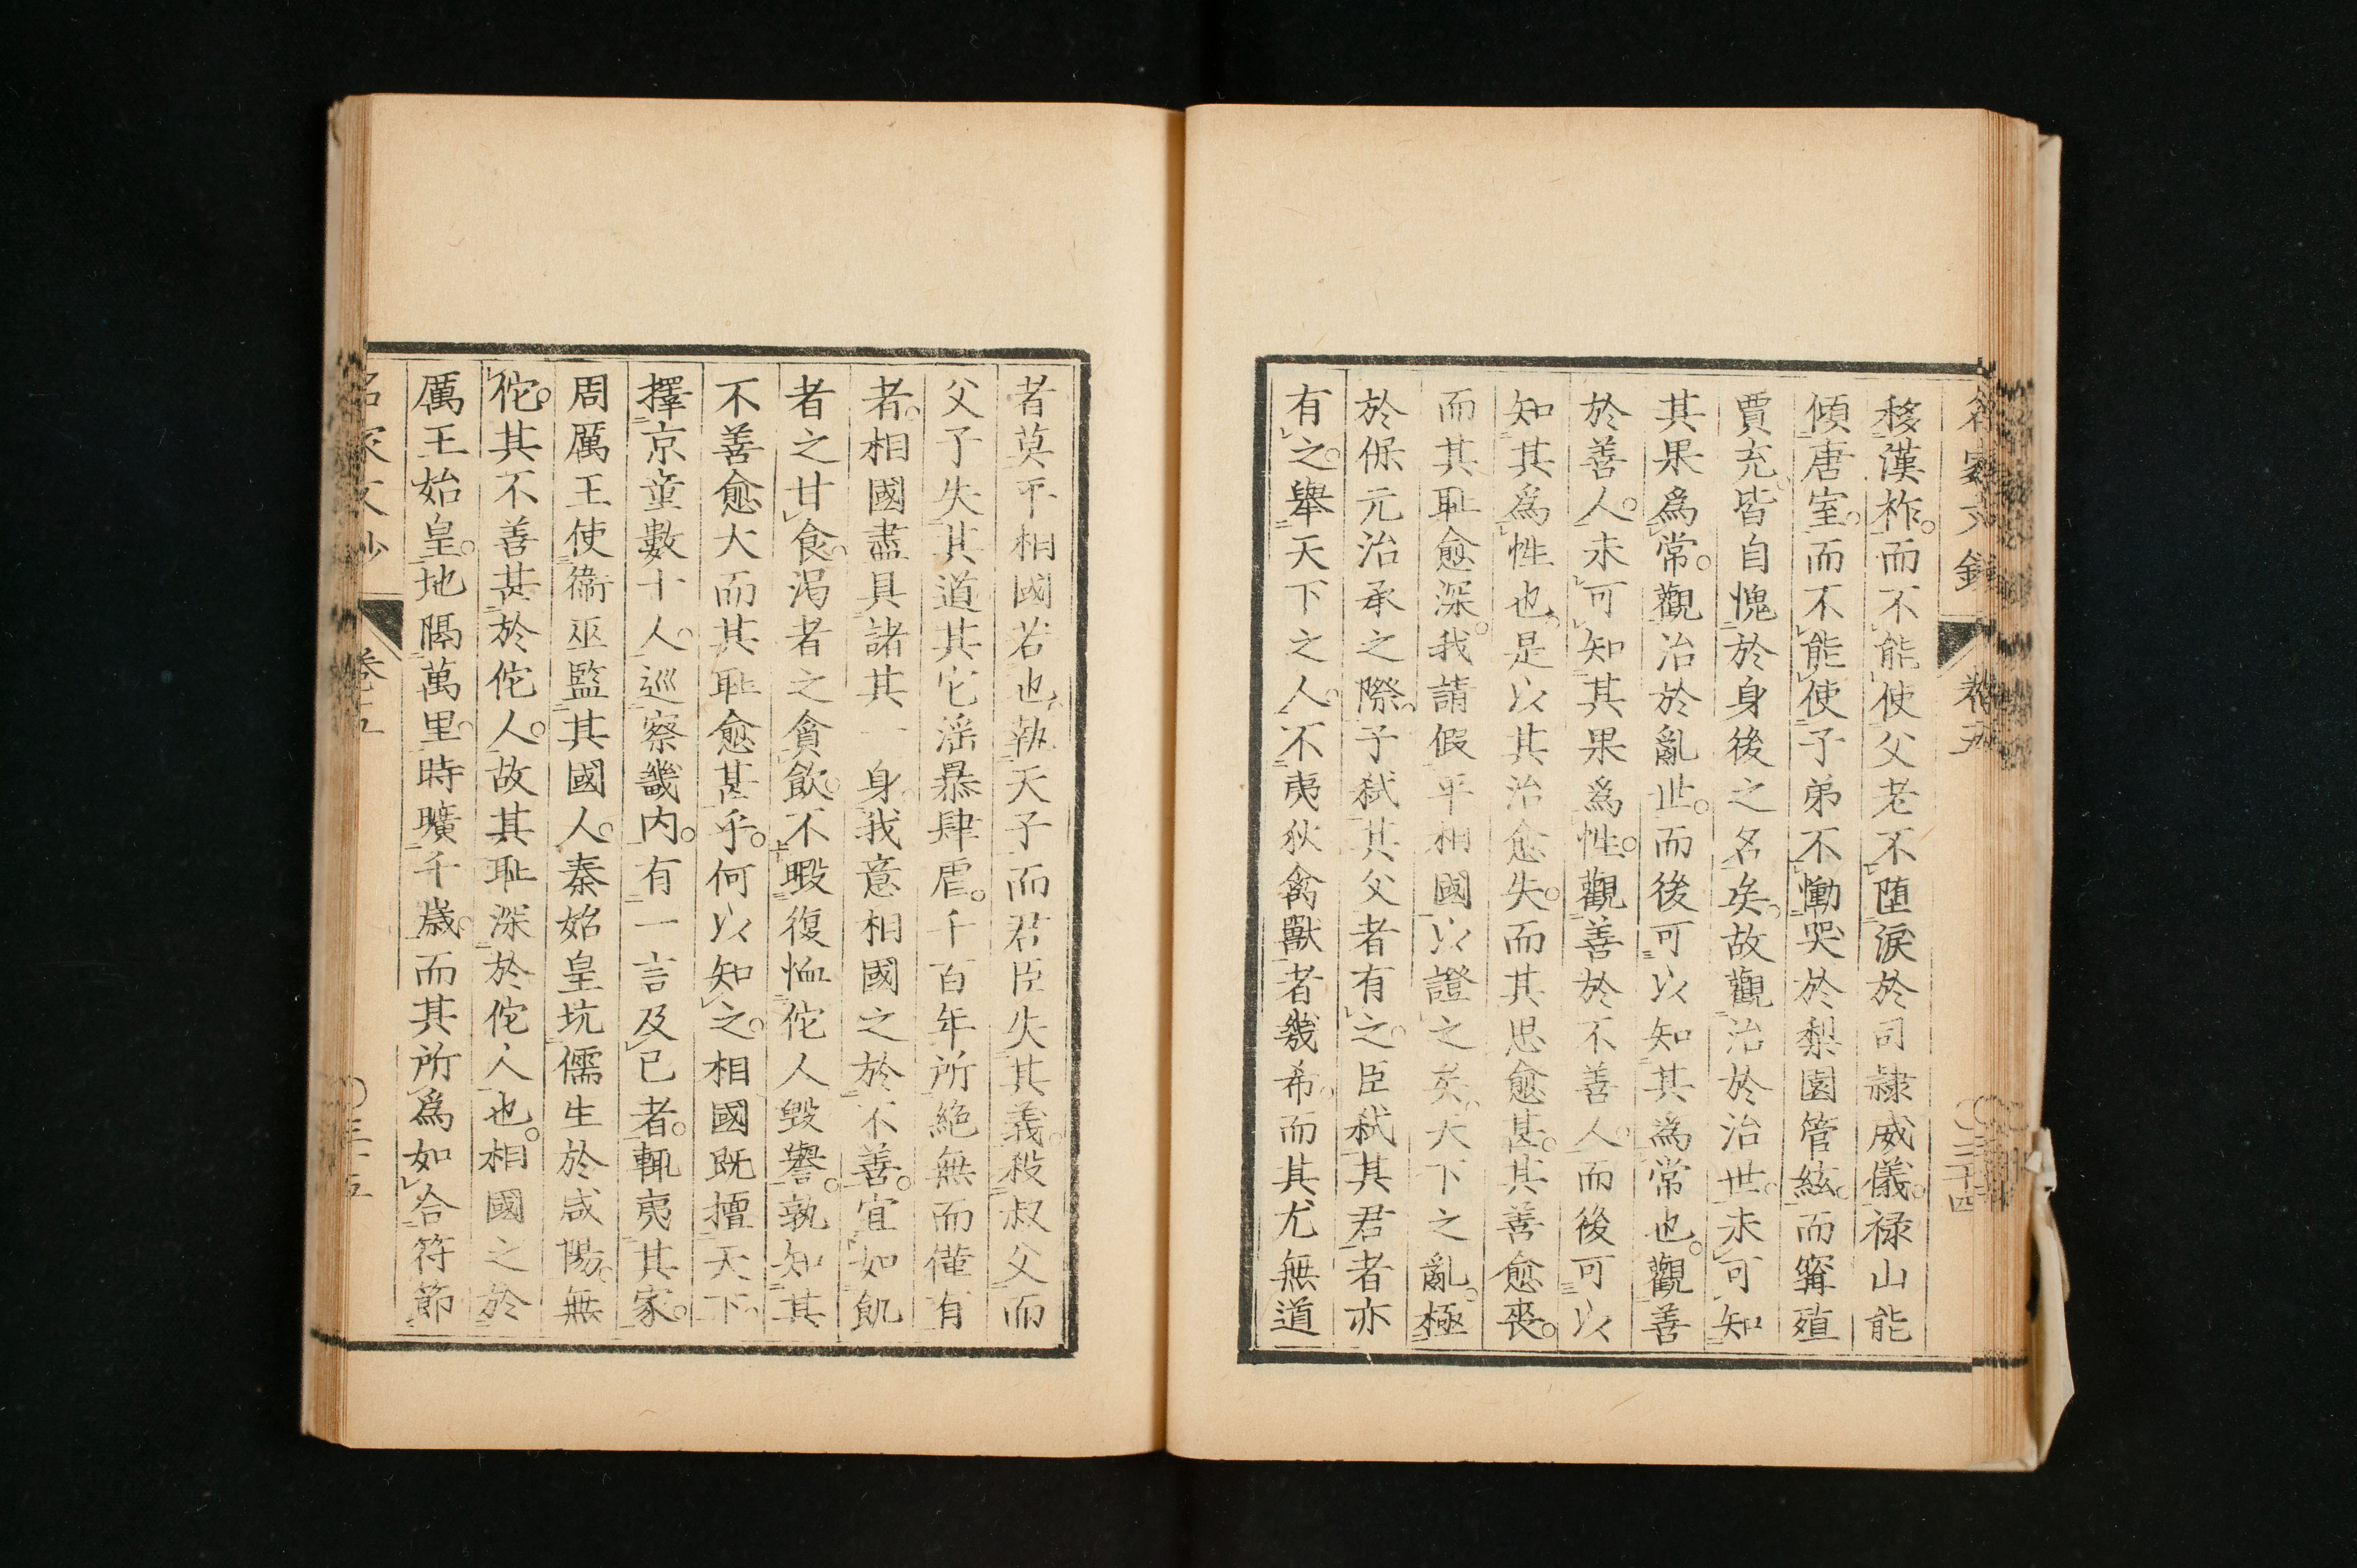 移漢祚。而不能使父老不墮淚於司隷威儀。祿山能
傾唐室。而不能使子弟不慟哭於梨園管絃。而甯殖
賈充。皆自愧於身後之名矣。故觀治於治世。未可知
其果爲常。觀治於亂世。而後可以知其爲常也。觀善
於善人。未可知其果爲性。觀善於不善人。而後可以
知其爲性也。是以其治愈失。而其思愈甚。其善愈喪。
而其耻愈深。我請假平相國以證之矣。天下之亂。極
於保元治承之際。子弑其父者有之。臣弑其君者亦
有之。舉天下之人。不夷狄禽獸者幾希。而其尤無道
者莫平相國若也。執天子而君臣失其義。殺叔父而
父子失其道。其它滛暴肆虐。千百年所絕無而僅有
者。相國盡具諸其一身。我意相國之於不善。宜如飢
者之甘食。渴者之貪飮。不暇復恤佗人毀譽。孰知其
不善愈大而其耻愈甚乎。何以知之。相國既擅天下。
擇京童數十人。巡察畿內。有一言及己者。輒夷其家。
周厲王使衞巫監其國人。秦始皇坑儒生於咸陽。無
佗。其不善甚於佗人。故其耻深於佗人也。相國之於
厲王始皇。地隔萬里。時曠千歲。而其所爲如合符節
名家文鈔
卷五